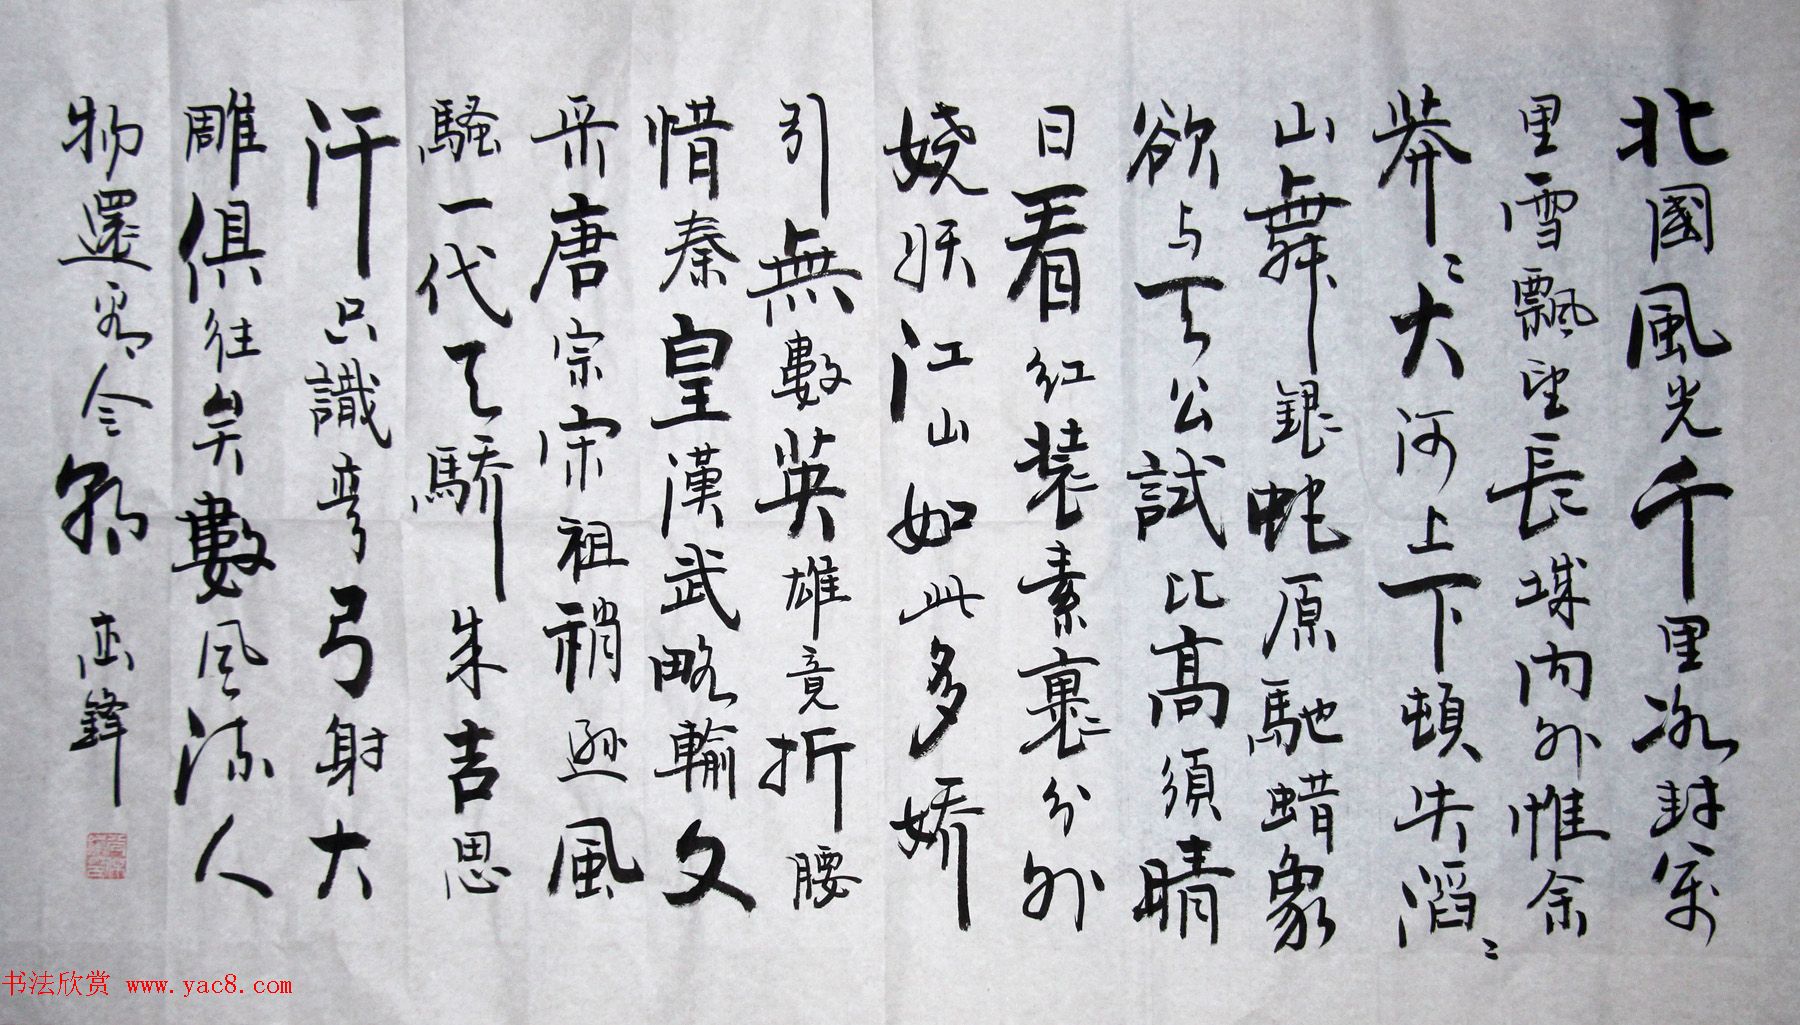 北國風光千里冰封萬
里雪飄望長城内外惟余
莽〻大河上下頓失滔〻
山舞銀蛇原馳蜡象
欲与天公試比高須晴
日看红装素裹分外
娆妖江山如此多娇
引無數英雄竟折腰
惜秦皇漢武略輸文
采唐宗宋祖稍遜風
騷一代天驕朱吉思
汗只識彎弓射大
雕俱往矣數風流人
物還看今朝
鋒
书法欣赏 www.yac8.com